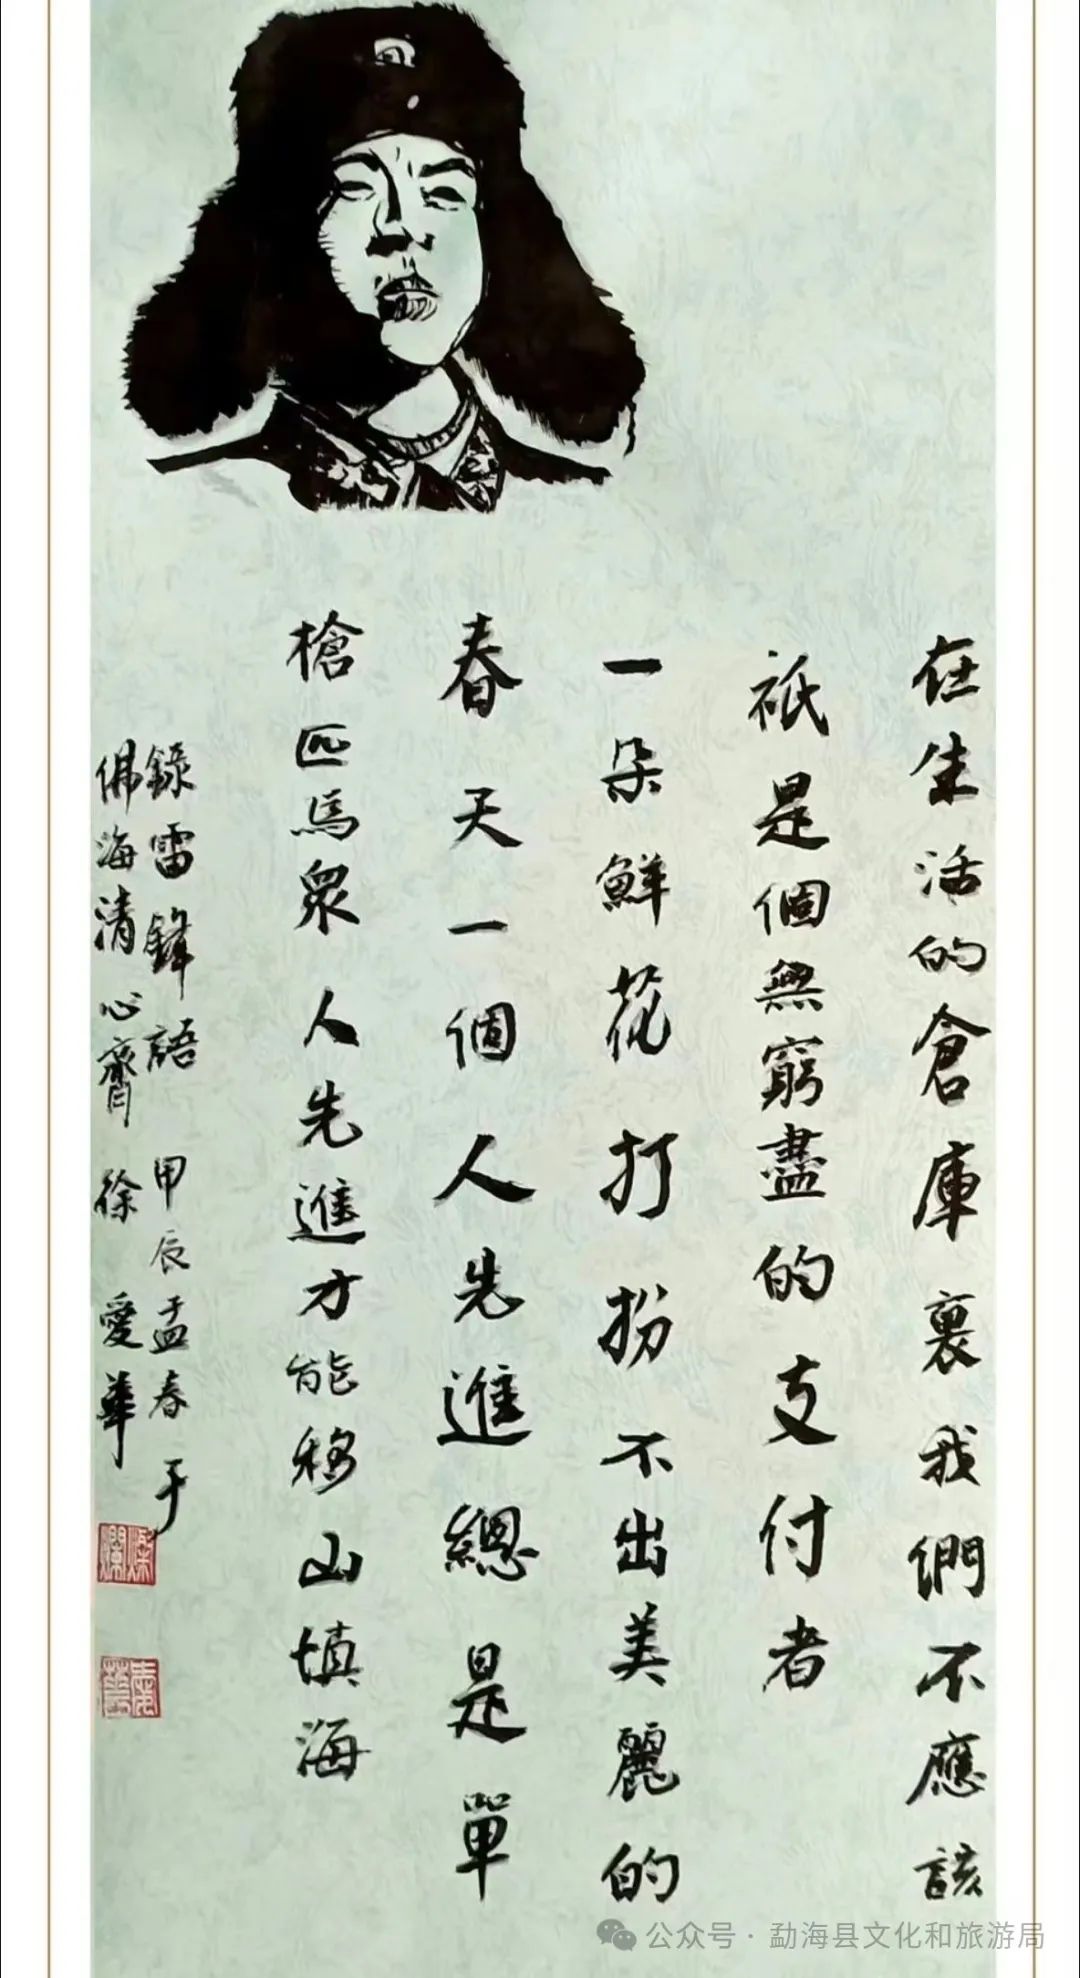 在生活的倉庫裏我們不應該
祇是個無窮盡的支付者
一朵鮮花打扮不出美麗的
春天一個人先進總是單
槍匹馬衆人先進才能移山填海
錄雷鋒語 甲辰孟春于
佛海清心齋 徐愛華
公众号·勐海县文化和旅游局